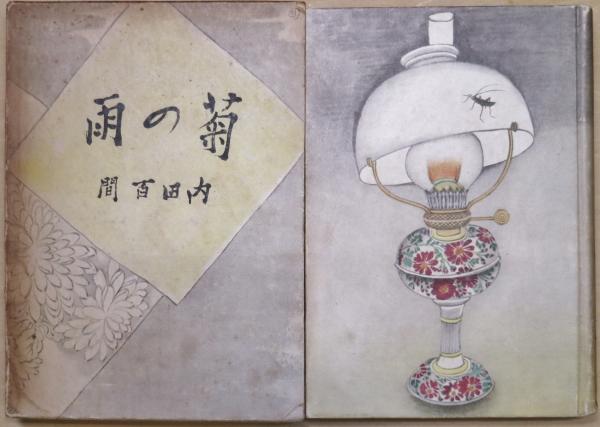 菊の雨
内田百間